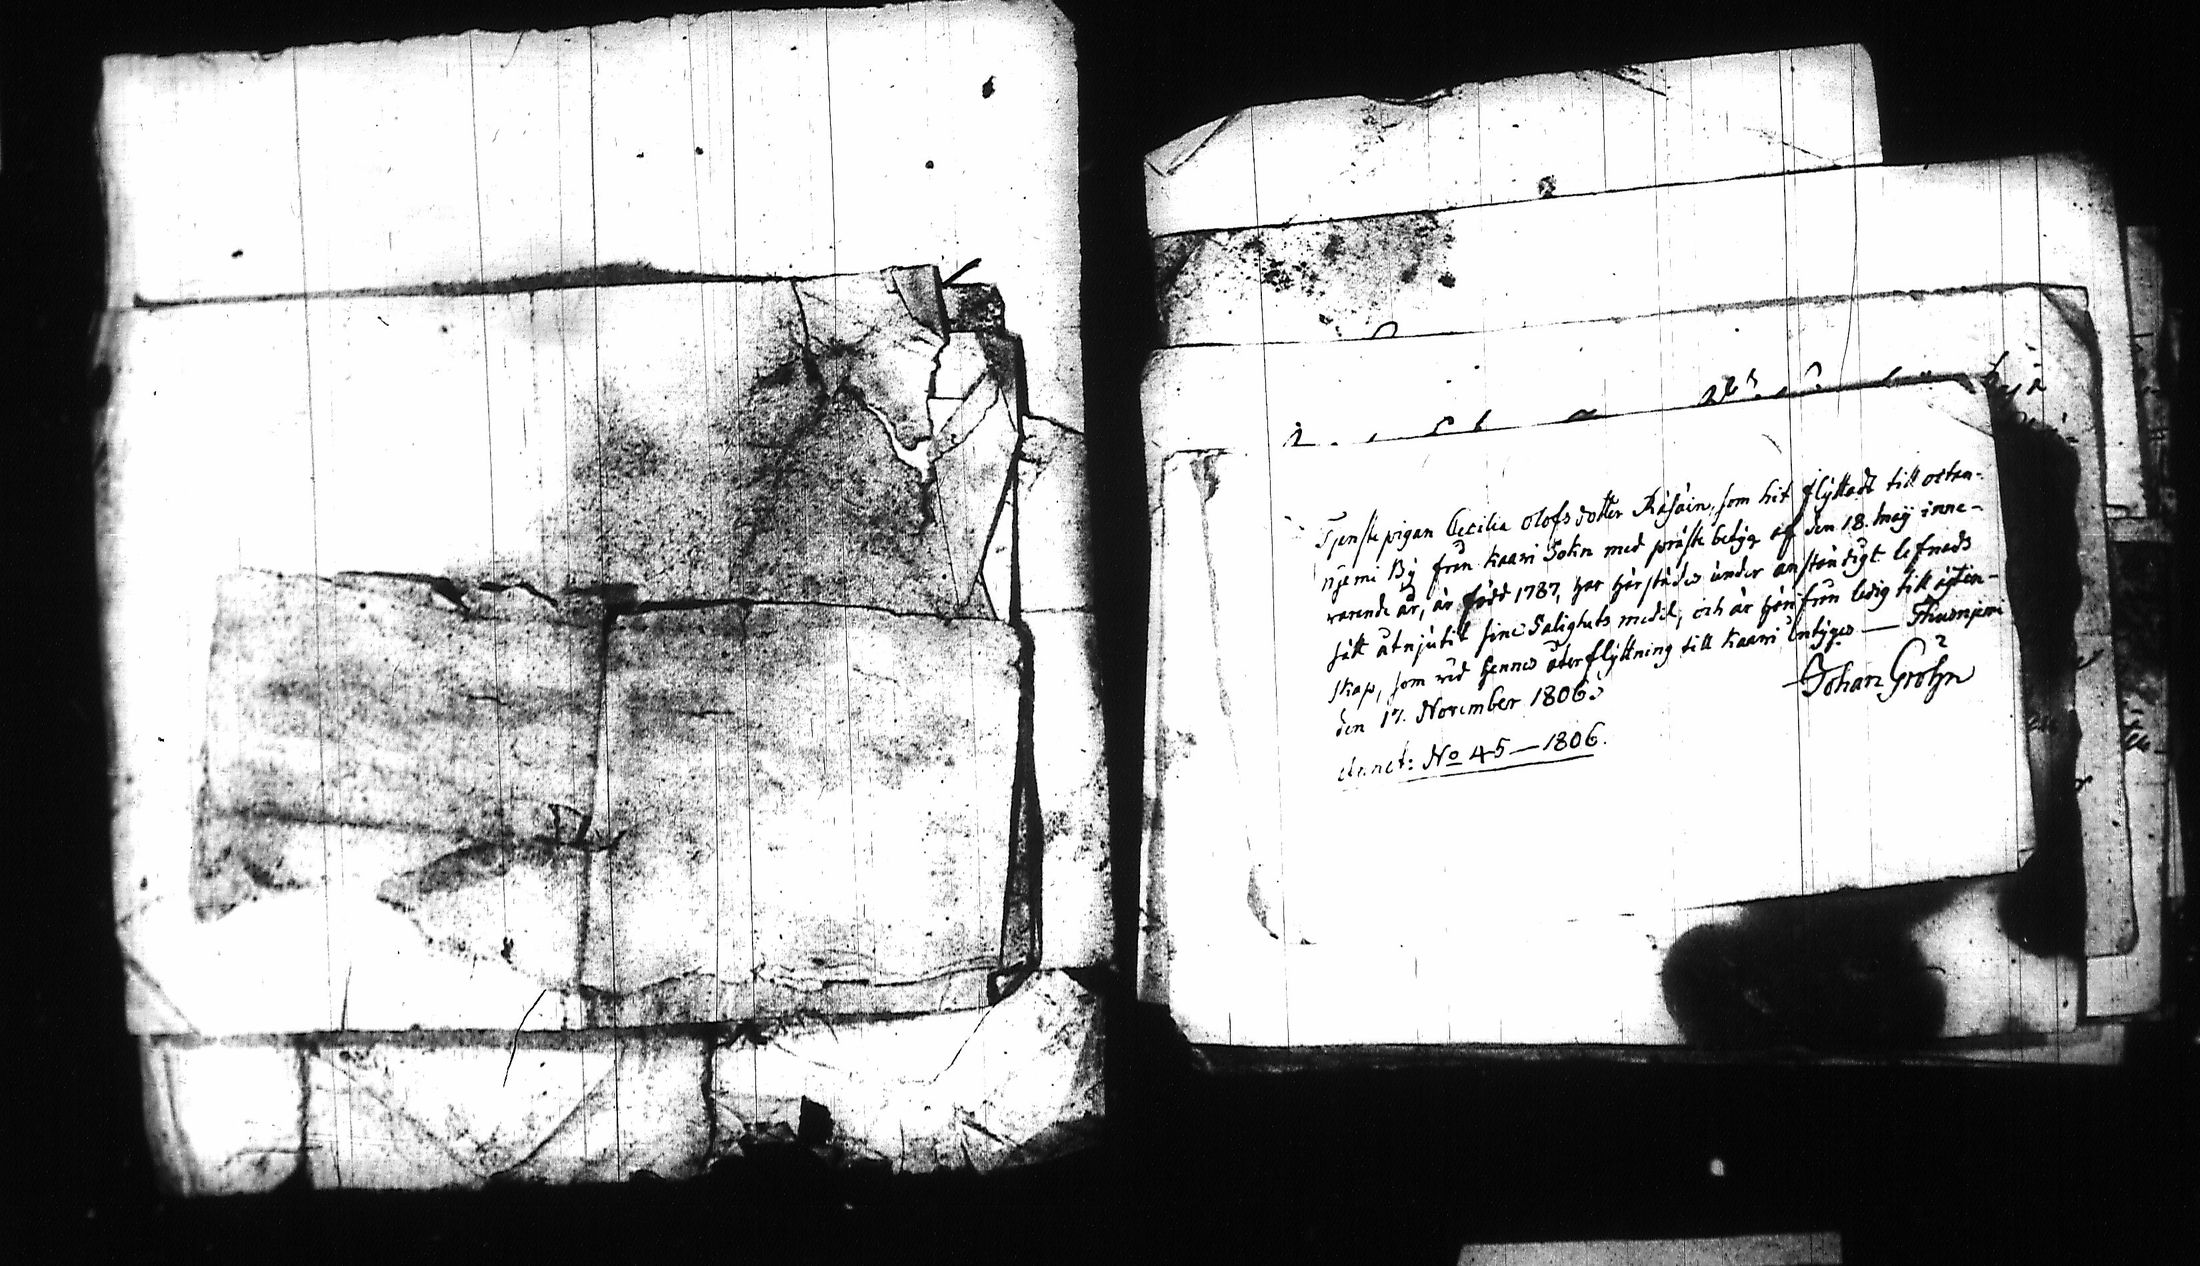 Tjenstepigan Cecilia Olofsdotter Räsäin, som hit flyttadt till ostan-
njemi By från Kaavi Sokn med prästebetyg af den 18. Maij inne-
varande år, är född 1787, har härstädes under anständigt lefnads
sätt åtnjutit sine Salighets medel, och är härifrån ledig till ägten-
skap, som vid hennes återflyttning till Kaavi intygas — Thusnjemi
den 17. November 1806.
Johan Gröhn
Annot: No 45 — 1806.